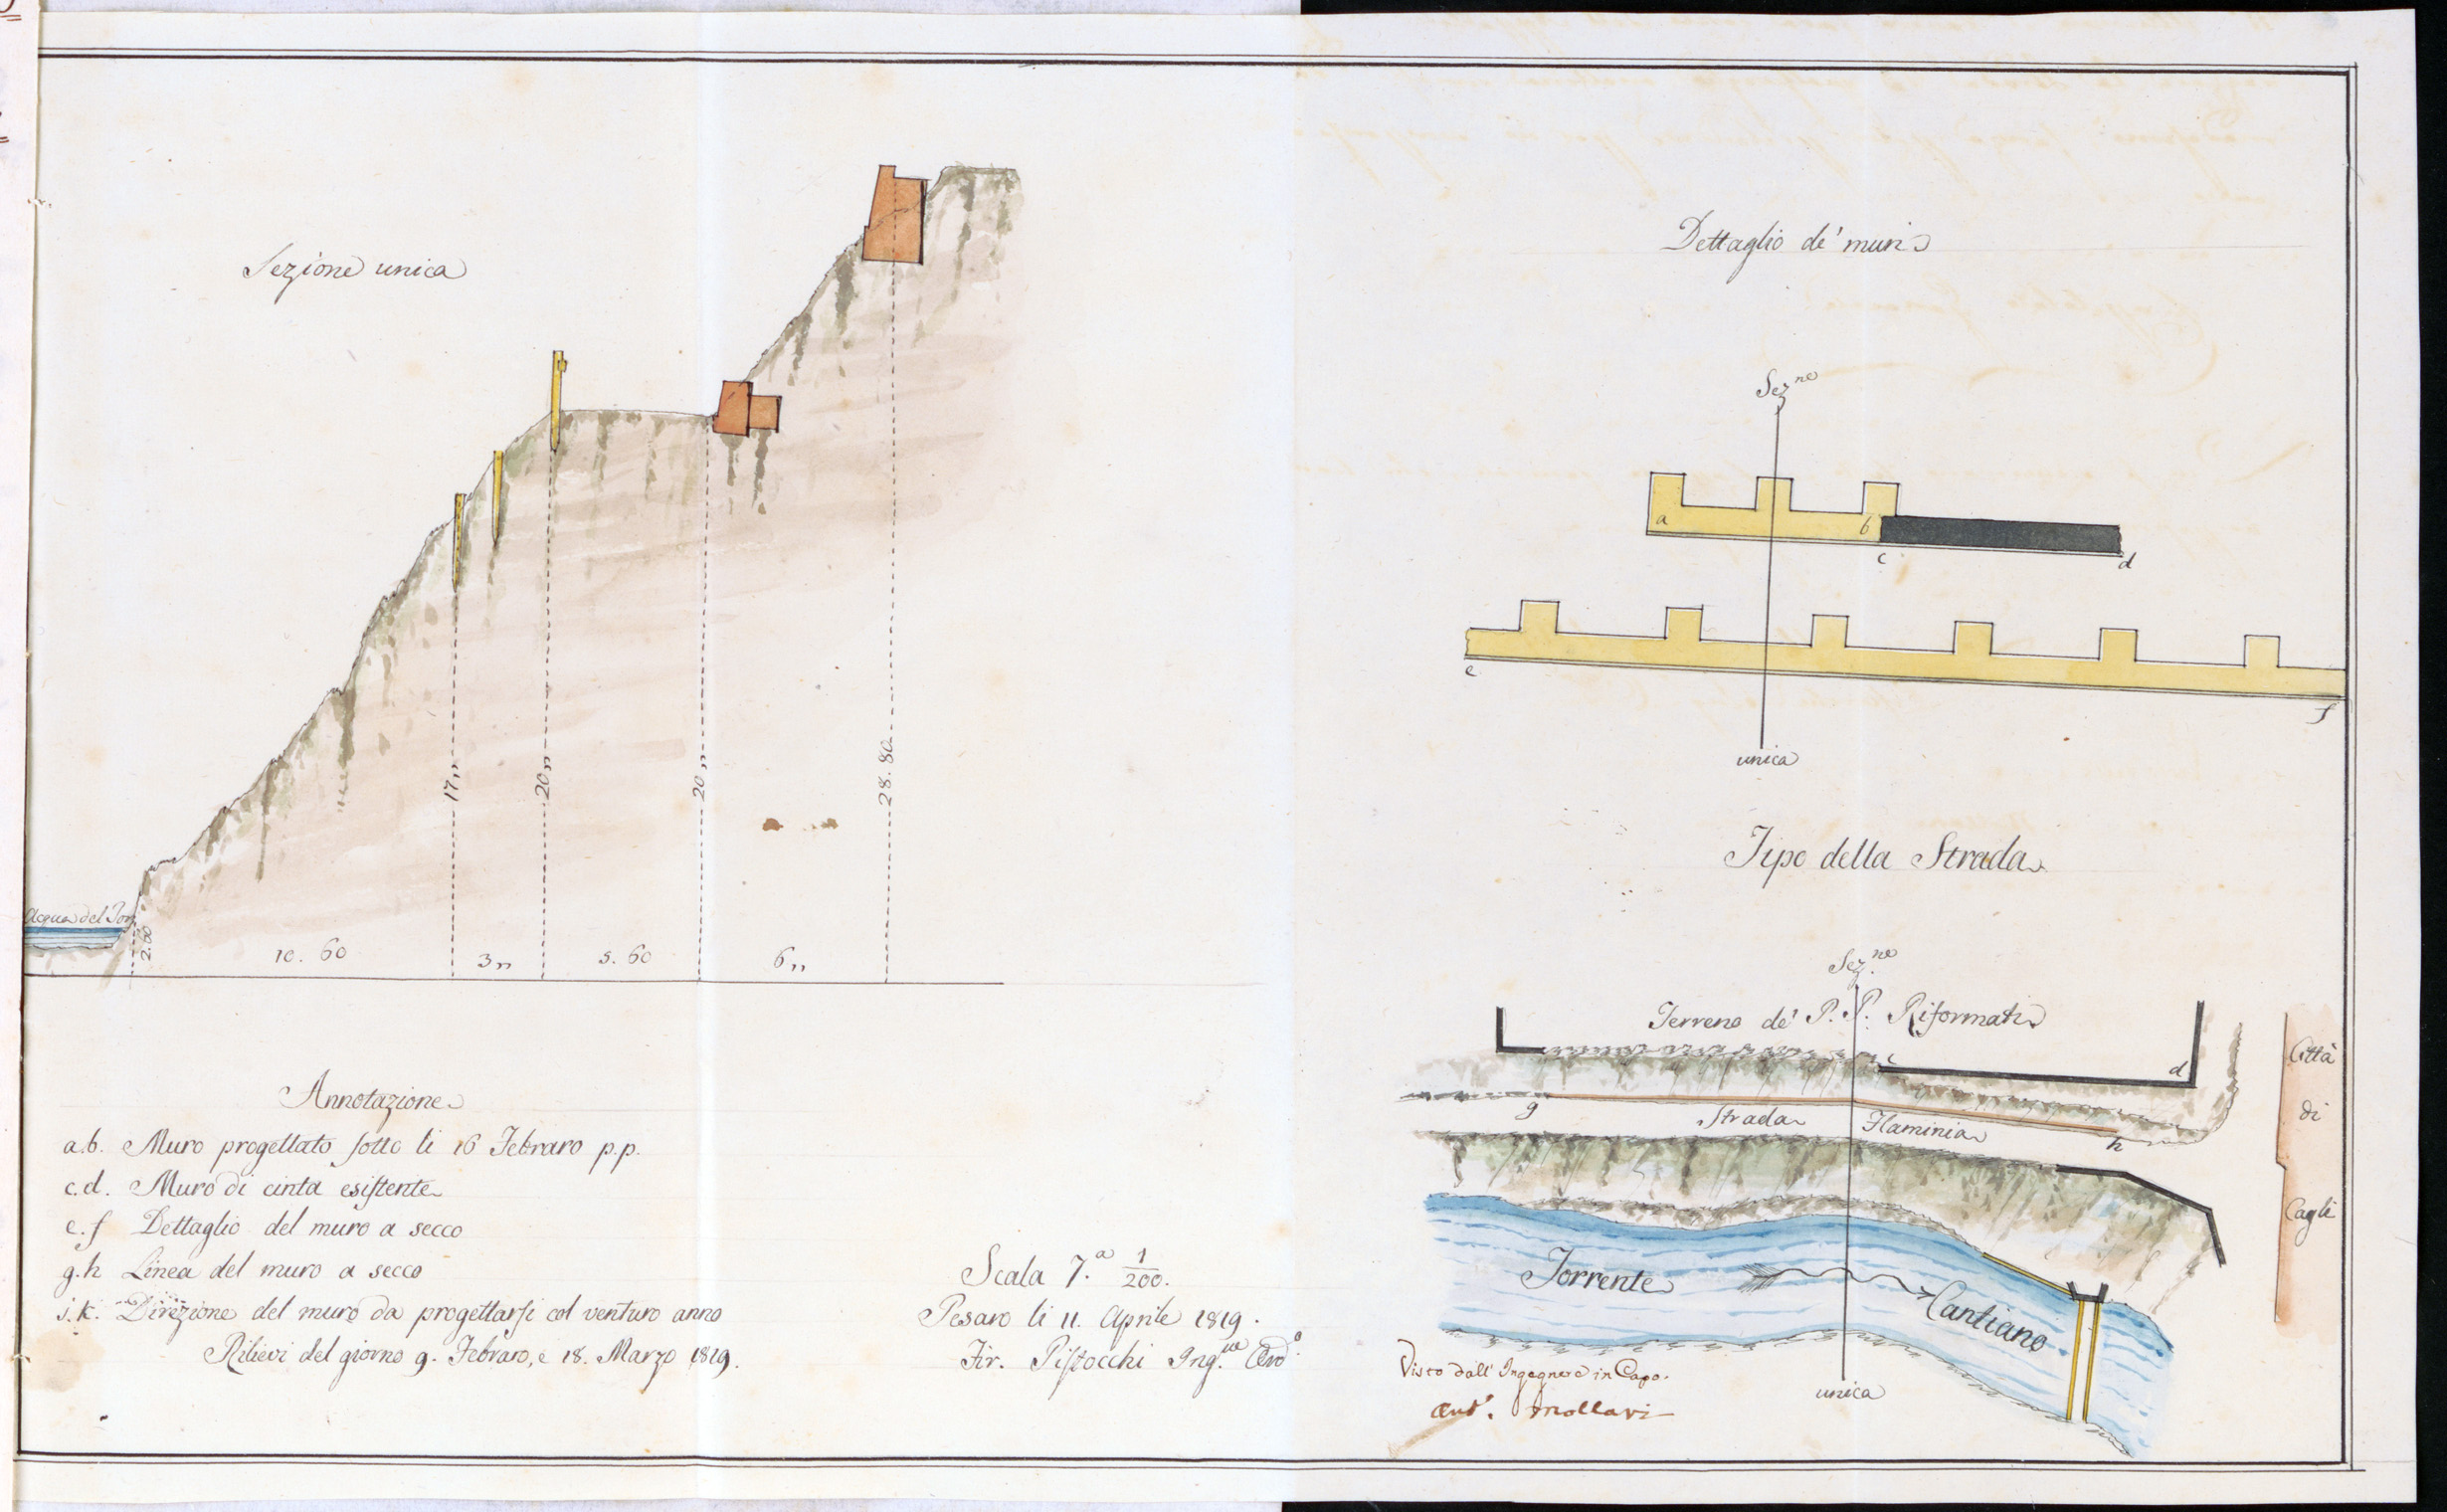 Sezione unica
Acqua del Tor
2.00
10.60
17„
3„
20„
5.60
20„
6„
28.80
Annotazione
a.b. Muro progettato sotto li 16 Febraro p.p.
c.d. Muro di cinta esistente
e.f Dettaglio del muro a secco
g.h Linea del muro a secco
i.k. Direzione del muro da progettarsi col venturo anno
Rilievi del giorno 9. Febraro, e 18. Marzo 1819.
Scala 7.a 1/200.
Pesaro li 11. Aprile 1819.
Fir. Pistocchi Ing.re Ord.o
Dettaglio de' muri
Sez.ne
a
b
c
d
e
f
unica
Tipo della Strada
Sez.ne
Terreno de' P.P. Riformati
c
d
g
Strada Flaminia
h
Città
di
Cagli
Torrente
Cantiano
unica
Visto dall' Ingegnere in Capo.
Mollari